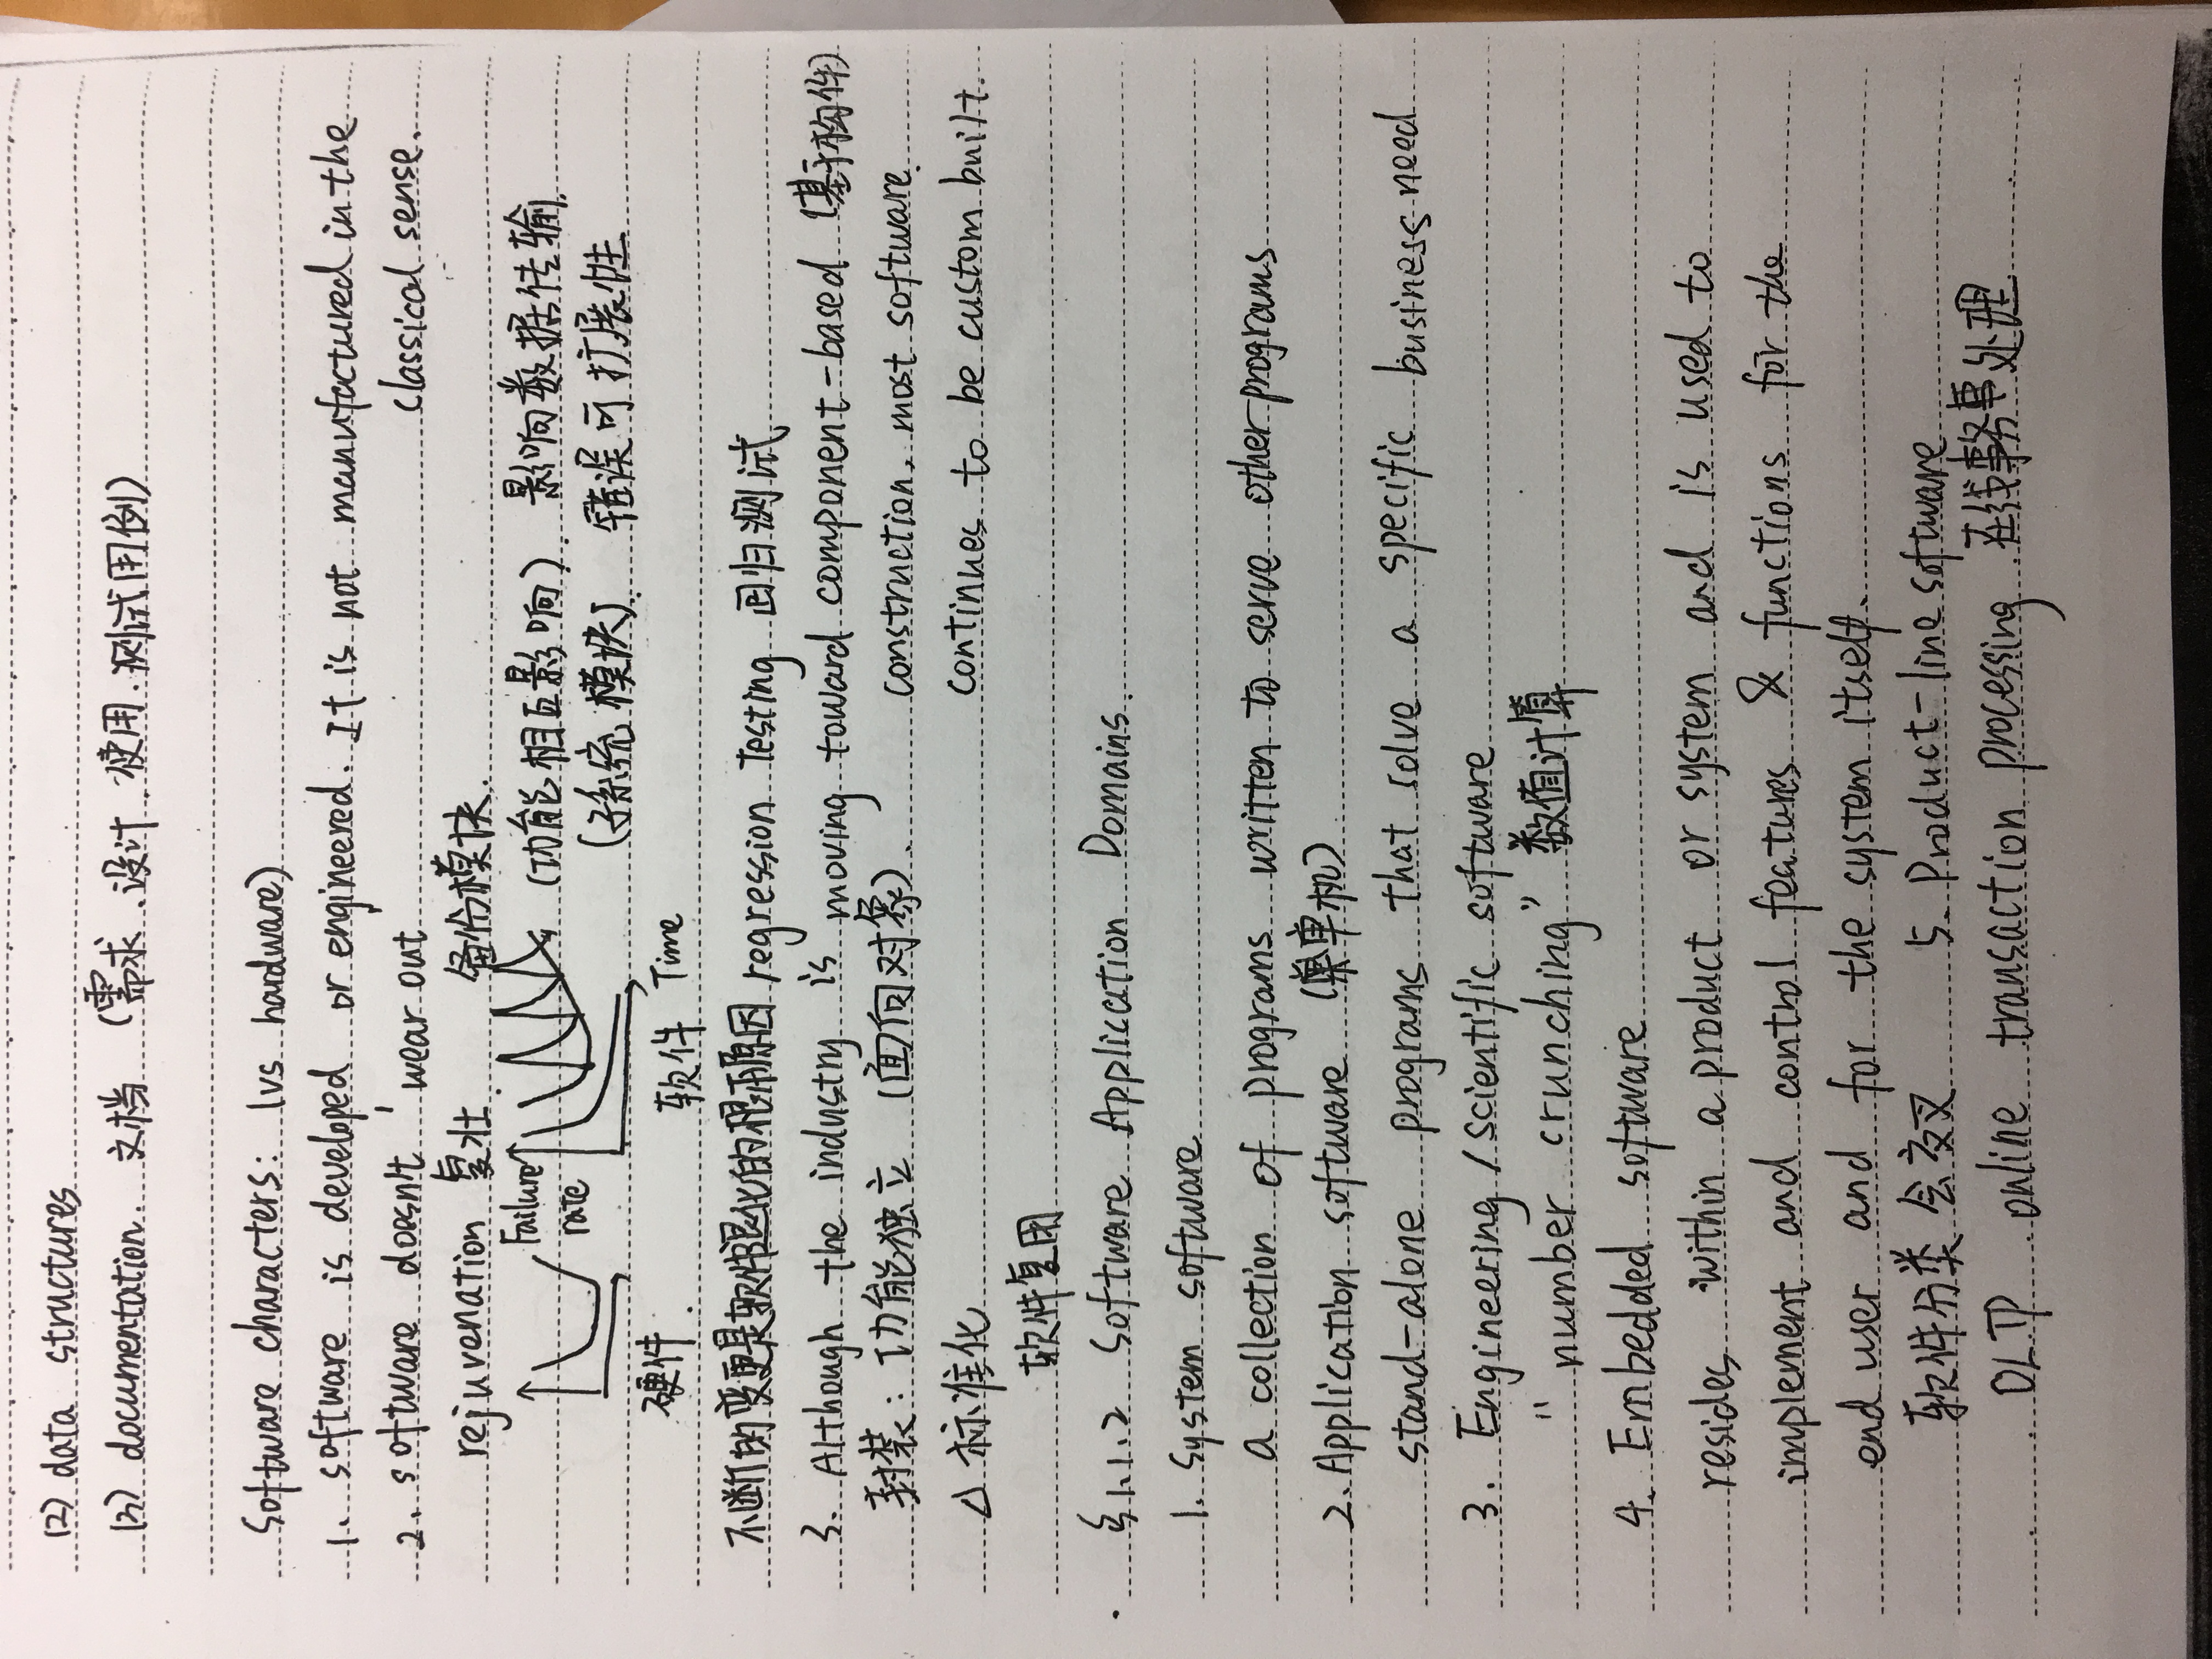 (2) data structures
(3) documentation. 文档 (需求、设计、使用、测试用例)
Software characters: (vs hardware)
1. software is developed or engineered. It is not manufactured in the
classical sense.
2. software doesn't 'wear out'
rejuvenation 复壮. 备份模块.
Failure rate
(功能相互影响). 影响数据传输.
(子系统 模块). 错误可扩展性
硬件. 软件 Time
不断的变更是软件退化的根本原因 regression Testing 回归测试
3. Although the industry is moving toward component-based (基于构件)
construction, most software
continues to be custom built.
封装: 功能独立 (面向对象).
△ 标准化
软件复用
§1.1.2 Software Application Domains.
1. System software
a collection of programs written to serve other programs
2. Application software (单机)
stand-alone programs that solve a specific business need
3. Engineering/Scientific software
"number crunching" 数值计算
4. Embedded software
resides within a product or system and is used to
implement and control features & functions for the
end user and for the system itself.
软件分类会交叉 5. Product-line software
OLTP online transaction processing 在线事务处理